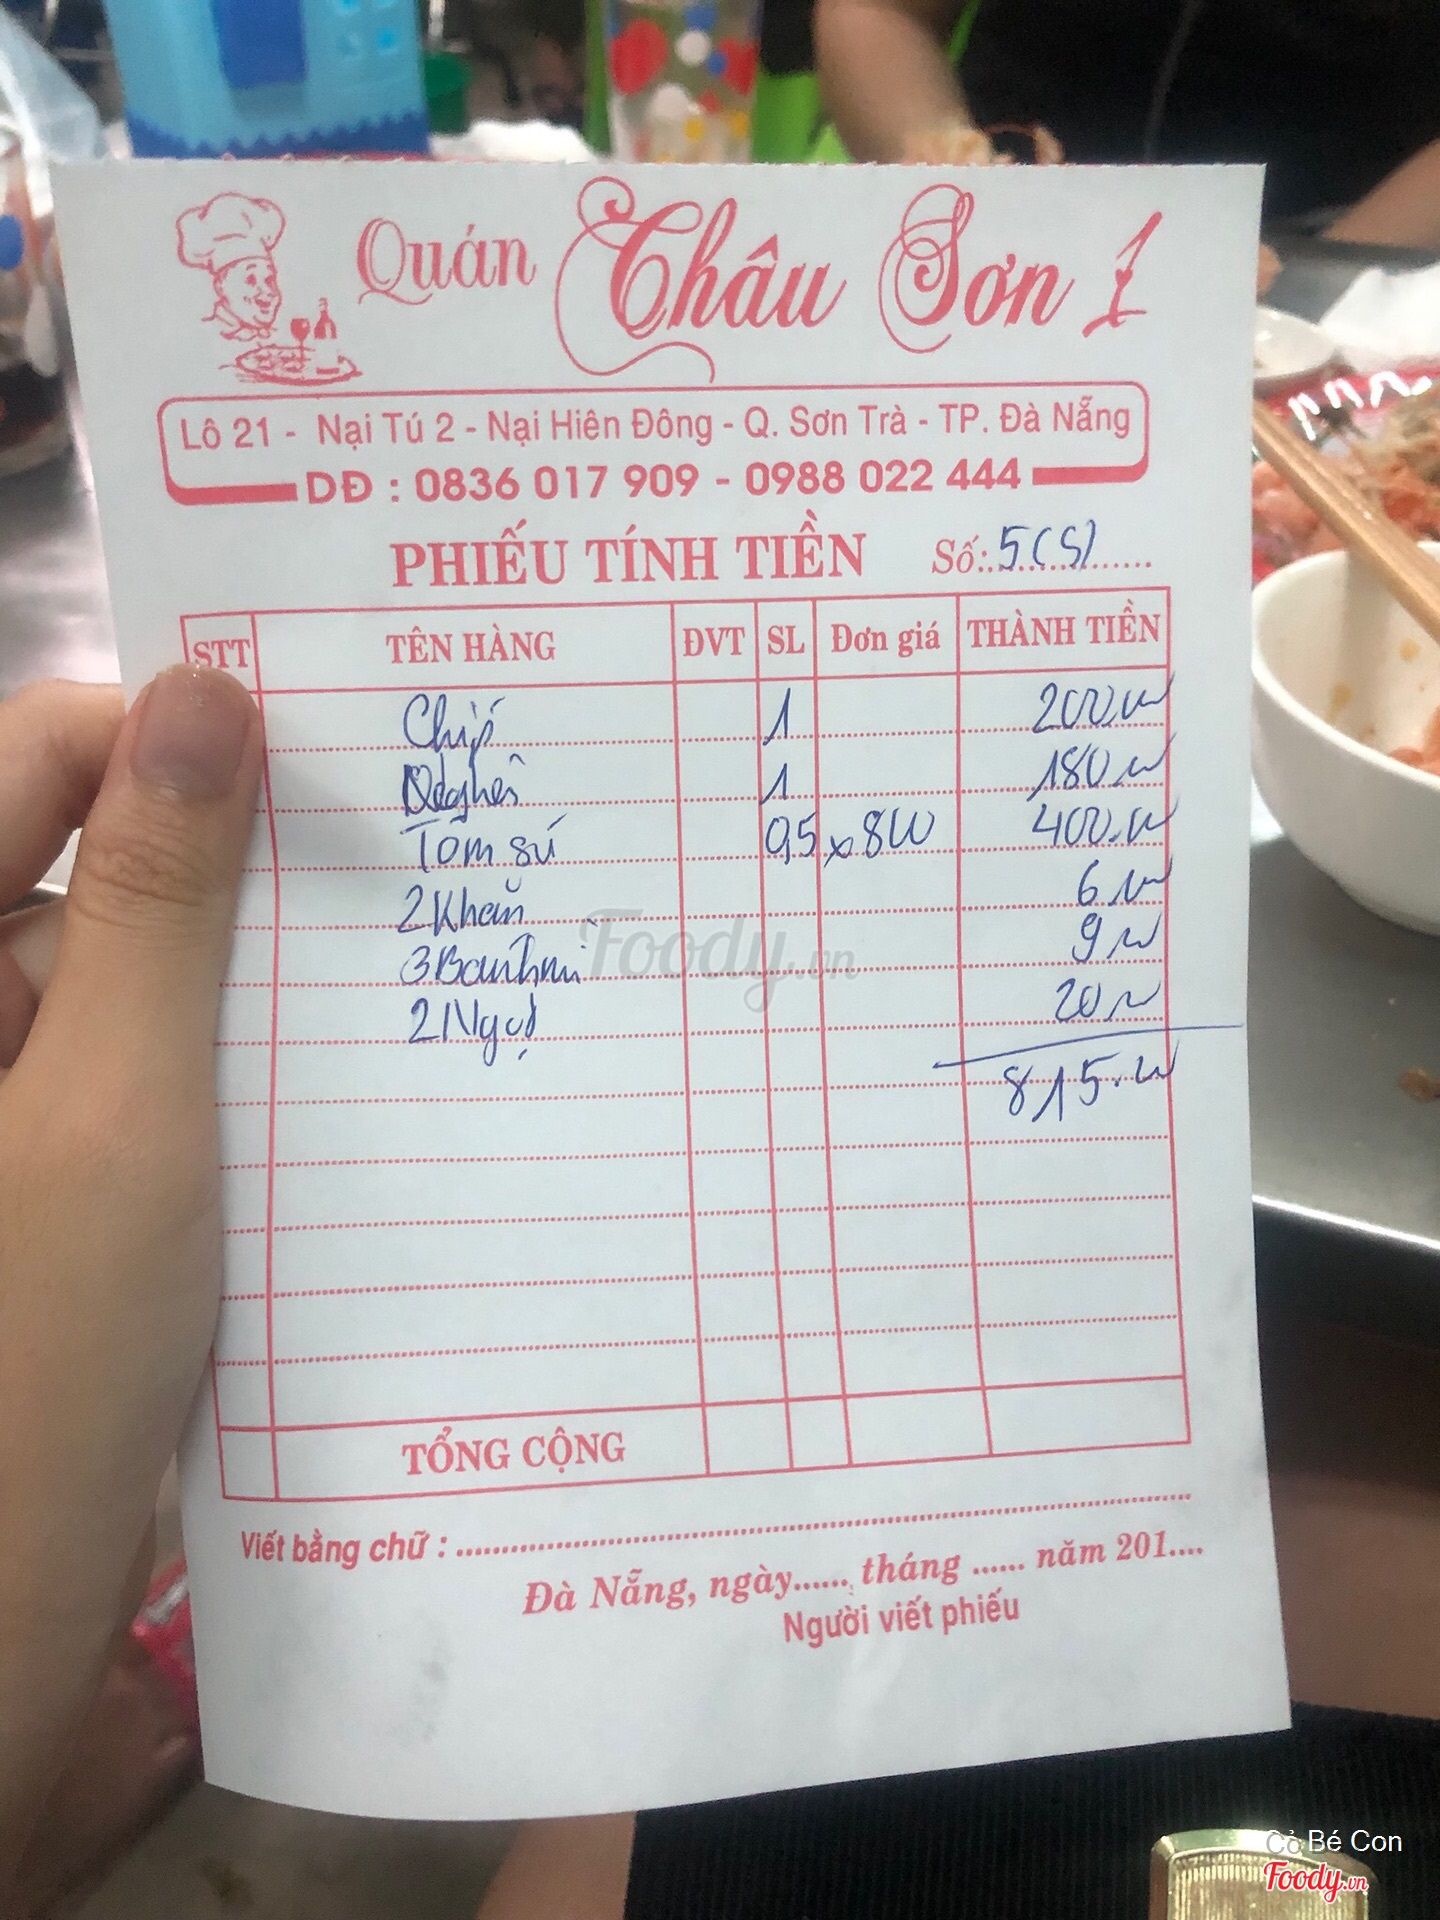 Quán Châu Sơn 1
Lô 21 - Nại Tú 2 - Nại Hiên Đông - Q. Sơn Trà - TP. Đà Nẵng
DĐ : 0836 017 909 - 0988 022 444
PHIẾU TÍNH TIỀN Số: 5(S)
STT TÊN HÀNG ĐVT SL Đơn giá THÀNH TIỀN
Chíp 1 200.
1 180
Tôm sú 0,5 x 800 400.
2 Khăn 6
3 Banhmì 9
2 Ngọt 20
815.
Foody.vn
TỔNG CỘNG
Viết bằng chữ :
Đà Nẵng, ngày...... tháng ...... năm 201....
Người viết phiếu
Cỏ Bé Con
Foody.vn